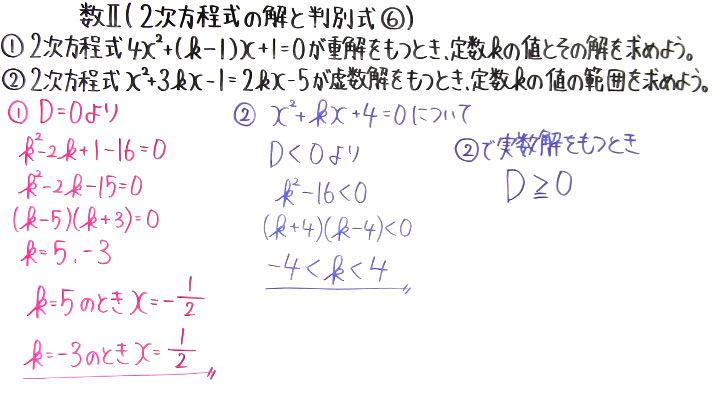 数Ⅱ(2次方程式の解と判別式⑥)
① 2次方程式 4x²+(k-1)x+1=0が重解をもつとき、定数kの値とその解を求めよう。
② 2次方程式 x²+3kx-1=2kx-5が虚数解をもつとき、定数kの値の範囲を求めよう。
① D=0より
k²-2k+1-16=0
k²-2k-15=0
(k-5)(k+3)=0
k=5、-3
k=5のとき x=-1/2
k=-3のとき x=1/2
② x²+kx+4=0について
D<0より
k²-16<0
(k+4)(k-4)<0
-4<k<4
②で実数解をもつとき
D≧0